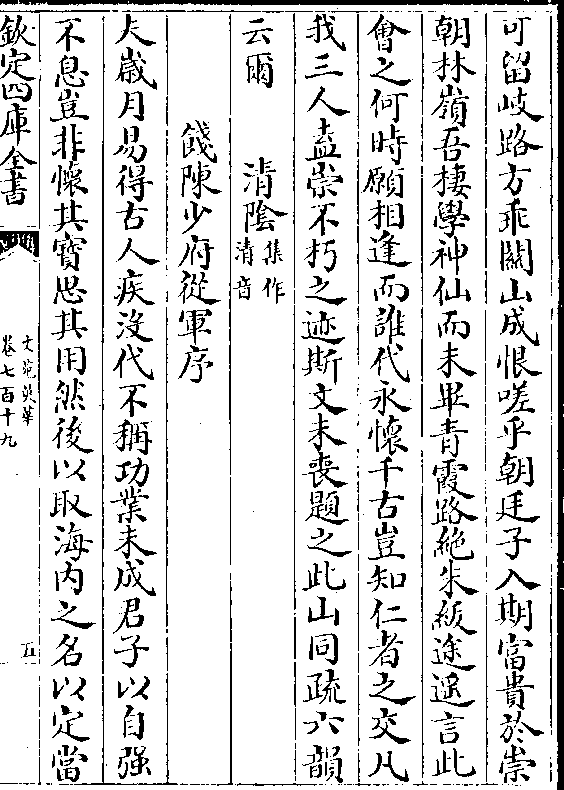 可留岐路方乖關山成恨嗟乎朝廷子入期富貴於崇
朝林嶺吾棲學神仙而未畢青霞路絶朱紱途遥言此
會之何時願相逢而誰代永懷千古豈知仁者之交凡
我三人盍崇不朽之迹斯文未喪題之此山同疏六韻
云爾　清陰集作清音
餞陳少府從軍序
夫嵗月易得古人疾沒代不稱功業未成君子以自強
不息豈非懷其寳思其用然後以取海内之名以定當
欽定四庫全書
文苑英華
卷七百十九
五